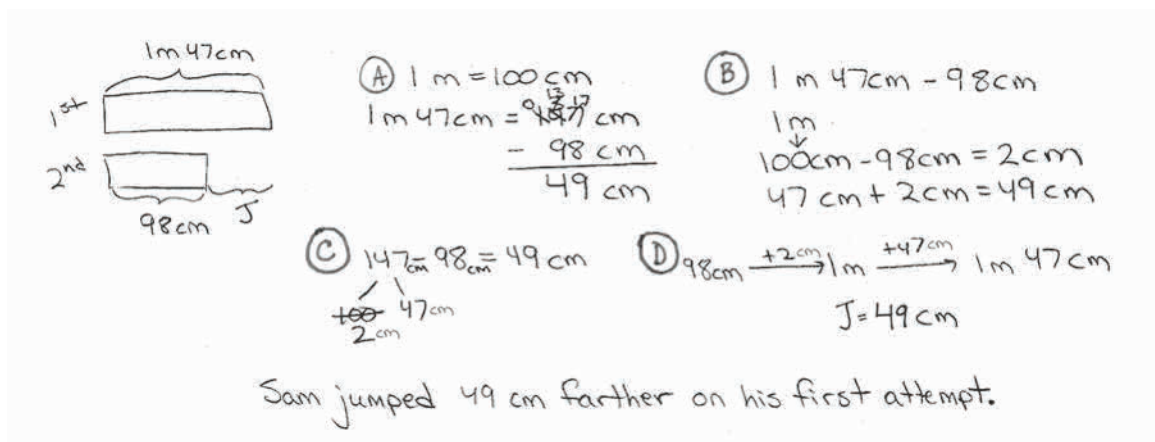 1m 47cm
1st
2nd
98cm
J
A 1 m = 100 cm
1m 47cm = 147 cm
- 98 cm
49 cm
B 1 m 47cm - 98cm
1m
100cm - 98cm = 2cm
47 cm + 2cm = 49cm
C 147cm - 98cm = 49 cm
100 47cm
2cm
D 98cm +2cm 1m +47cm 1m 47cm
J = 49cm
Sam jumped 49 cm farther on his first attempt.